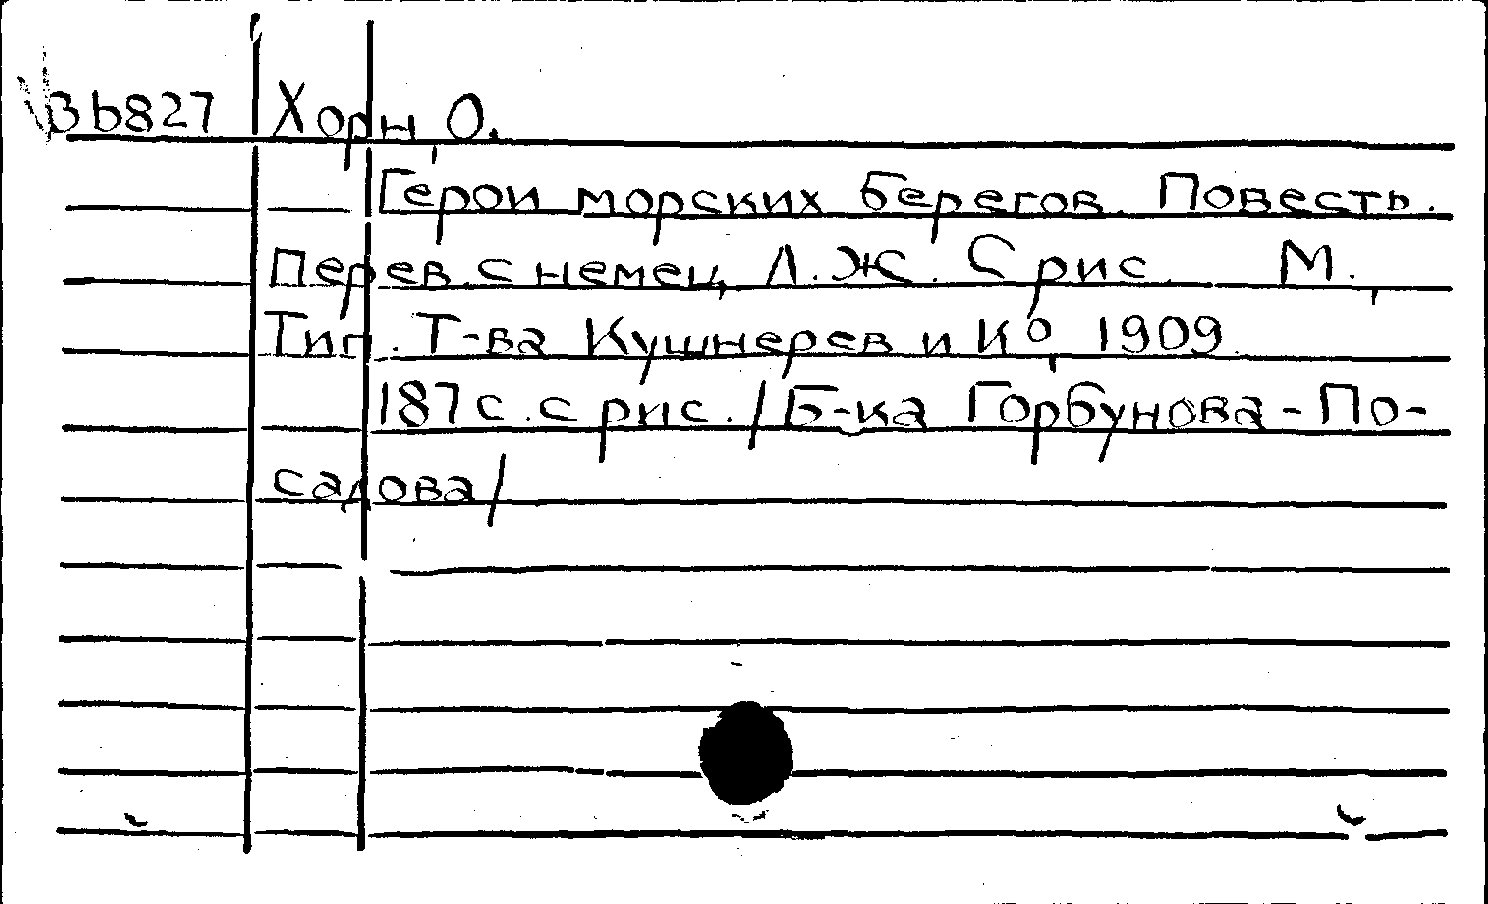 Вb827 Хорн, О.
Герои морских берегов. Повесть.
Перев. с немец. Л.Ж. С рис. М.,
Тип. Т-ва Кушнерев и К⁰, 1909.
187 с. с рис. /Б-ка Горбунова-По-
садова/